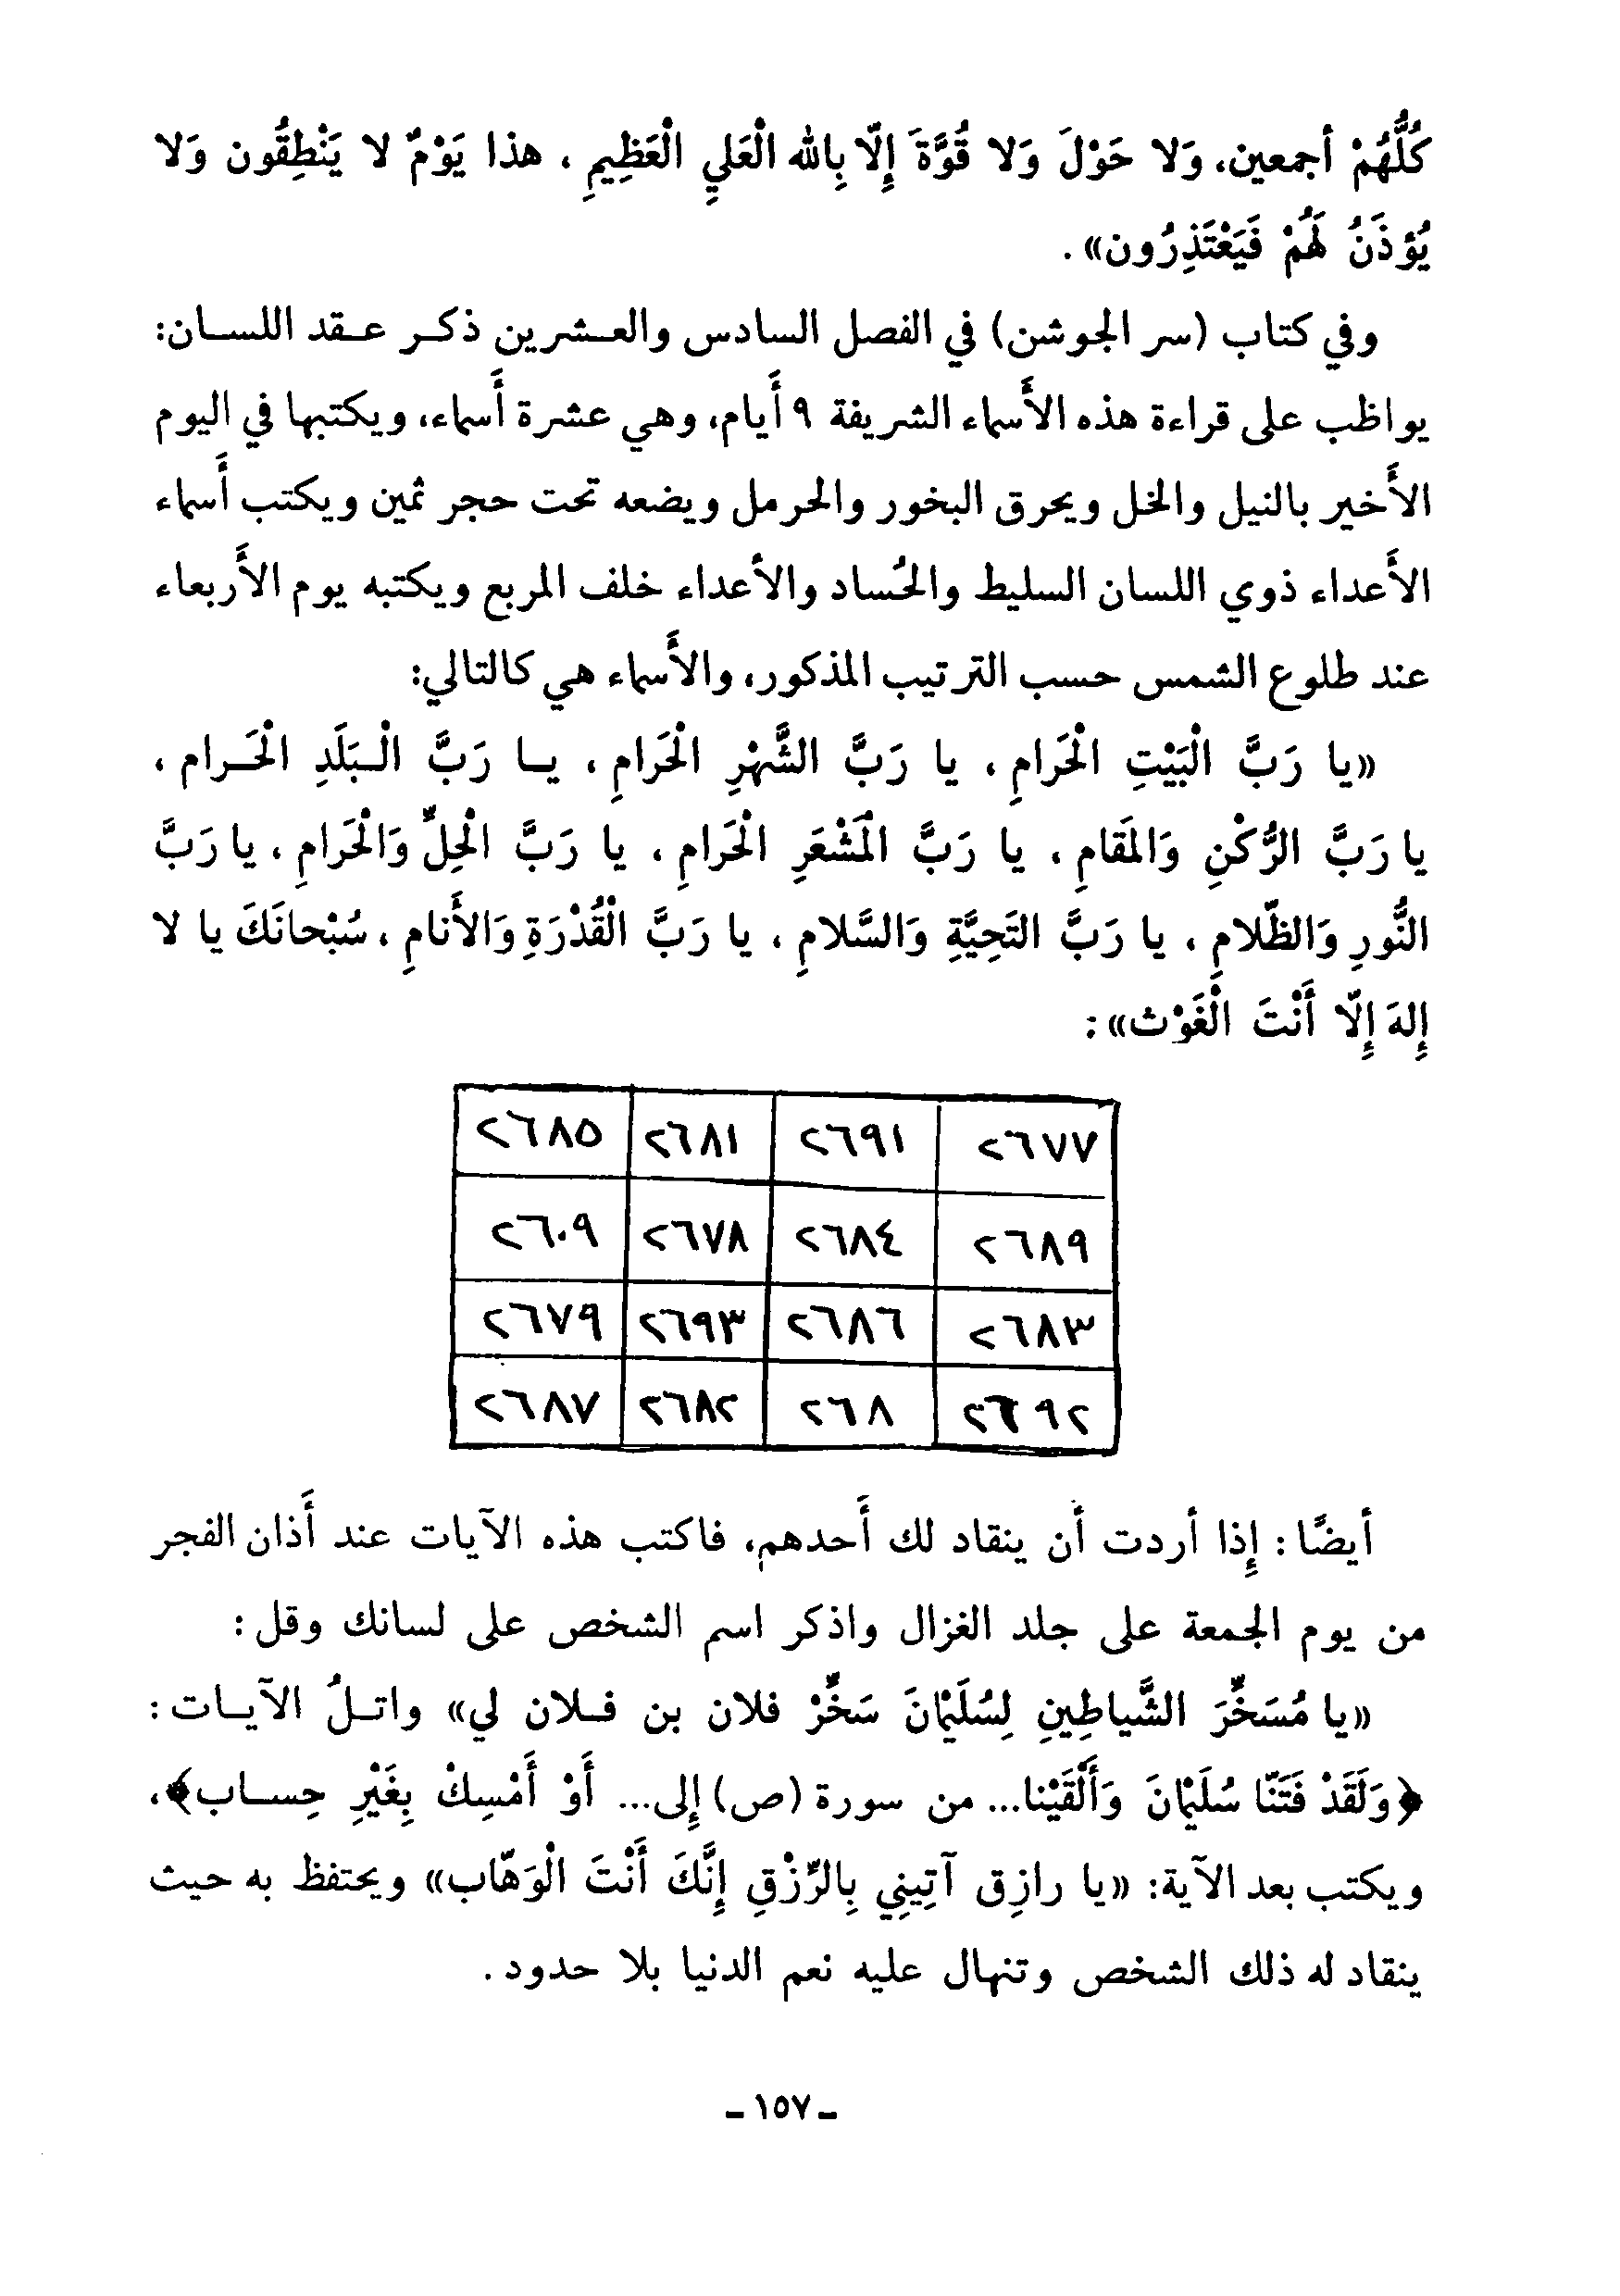 كُلُّهُمْ أجمعين، وَلا حَوْلَ وَلا قُوَّةَ إِلّا بِالله الْعَليِ الْعَظِيمِ ، هذا يَوْمٌ لا يَنْطِقُون وَلا
يُؤذَنُ لَهُمْ فَيَعْتَذِرُون» .
وفي كتاب (سر الجوشن) في الفصل السادس والعـشرين ذكـر عـقد اللسـان:
يواظب على قراءة هذه الأَسماء الشريفة ٩ أَيام، وهي عشرة أَسماء، ويكتبها في اليوم
الأَخير بالنيل والخل ويحرق البخور والحرمل ويضعه تحت حجر ثمين ويكتب أَسماء
الأَعداء ذوي اللسان السليط والحُساد والأعداء خلف المربع ويكتبه يوم الأَربعاء
عند طلوع الشمس حسب الترتيب المذكور، والأَسماء هي كالتالي:
«يا رَبَّ الْبَيْتِ الْحَرامِ ، يا رَبَّ الشَّهْرِ الْحَرامِ ، يـا رَبَّ الْـبَلَدِ الْحَـرام ،
يا رَبَّ الرُّكْنِ وَالمَقامِ ، يا رَبَّ الْمَشْعَرِ الْحَرامِ ، يا رَبَّ الْحِلِّ وَالْحَرامِ ، يا رَبَّ
النُّورِ وَالظّلامِ ، يا رَبَّ التَحِيَّةِ وَالسَّلامِ ، يا رَبَّ الْقُدْرَةِ وَالأَنامِ ، سُبْحانَكَ يا لا
إِلهَ إِلّا أَنْتَ الْغَوْث» :
٢٦٧٧ ٢٦٩١ ٢٦٨١ ٢٦٨٥
٢٦٨٩ ٢٦٨٤ ٢٦٧٨ ٢٦٠٩
٢٦٨٣ ٢٦٨٦ ٢٦٩٣ ٢٦٧٩
٢٦٩٢ ٢٦٨ ٢٦٨٢ ٢٦٨٧
أيضًا : إِذا أردت أَن ينقاد لك أَحدهم، فاكتب هذه الآيات عند أَذان الفجر
من يوم الجمعة على جلد الغزال واذكر اسم الشخص على لسانك وقل :
«يا مُسَخِّرَ الشَّياطِينِ لِسُلَيْمانَ سَخِّرْ فلان بن فـلان لي» واتـلُ الآيـات :
﴿وَلَقَدْ فَتَنّا سُلَيْمانَ وَأَلْقَيْنا... من سورة (ص) إِلى... أَوْ أَمْسِكْ بِغَيْرِ حِسـاب﴾،
ويكتب بعد الآية: «يا رازِق آتِينِي بِالرِّزْقِ إِنَّكَ أَنْتَ الْوَهّاب» ويحتفظ به حيث
ينقاد له ذلك الشخص وتنهال عليه نعم الدنيا بلا حدود .
ـ ١٥٧ ـ